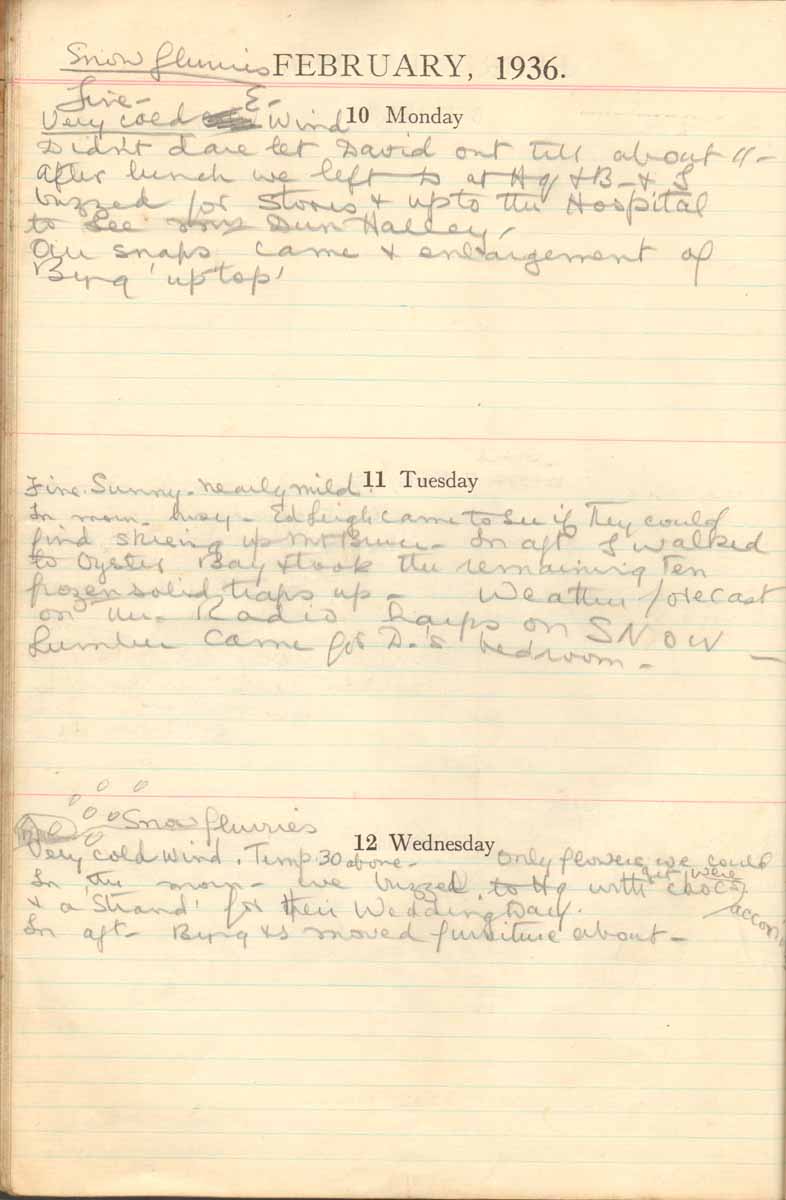 Snow flurries FEBRUARY, 1936.
Fine - E -
Very cold Wind 10 Monday
Didn't dare let David out till about 11 -
After lunch we left D at Hq & B - & I
buzzed for Stores & up to the Hospital
to see Dun Halley,
Our snaps came & enlargement of
Byng 'up top'
11 Tuesday
Fine. Sunny. nearly mild.
In morn. busy - Ed Leigh came to see if They could
find skiing up Mt Bruce - In aft I walked
to Oyster Bay & took the remaining Ten
frozen solid traps up - Weather forecast
on the Radio harps on SNOW -
Lumber came for D.'s bedroom -
Snow flurries
12 Wednesday
Very cold wind. Temp 30 above - Only flowers we could
get were
In the morn - we buzzed to Hq with choc's
& a 'Strand' for their Wedding Day.
In aft - Byng & I moved furniture about -